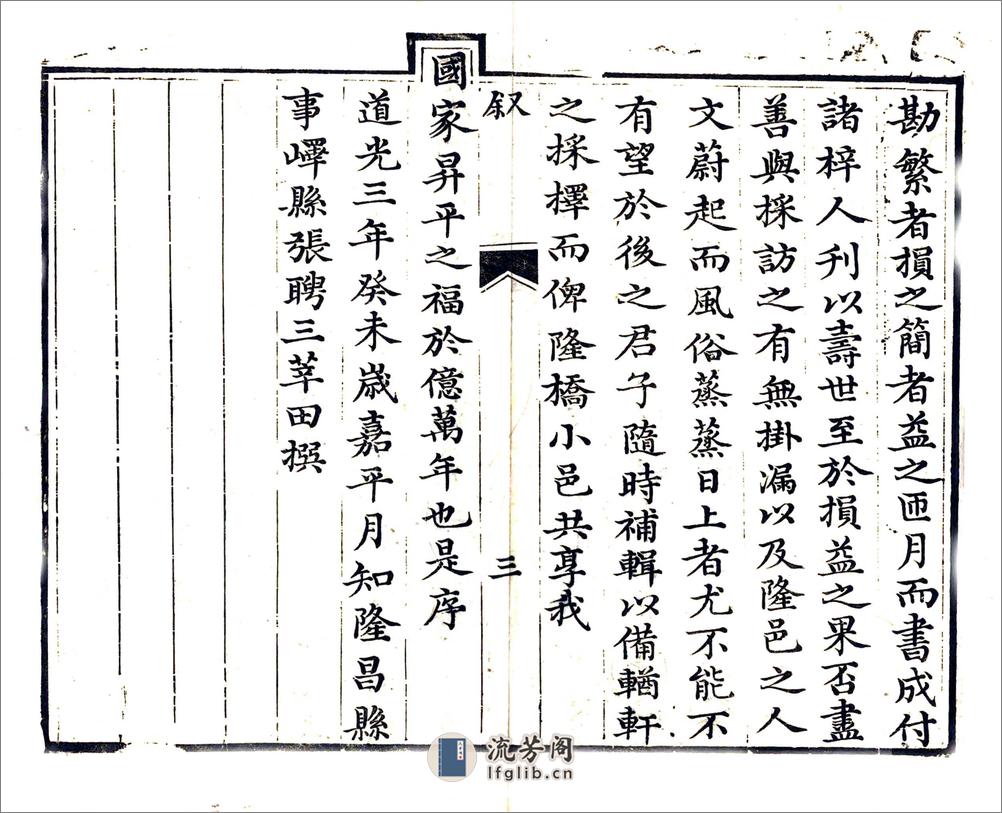 勘繁者損之簡者益之匝月而書成付
諸梓人刊以壽世至於損益之果否盡
善與採訪之有無掛漏以及隆邑之人
文蔚起而風俗蒸蒸日上者尤不能不
有望於後之君子隨時補輯以備輶軒
之採擇而俾隆橋小邑共享我
叙
三
國家昇平之福於億萬年也是序
道光三年癸未歲嘉平月知隆昌縣
事嶧縣張聘三莘田撰
流芳阁
lfglib.cn